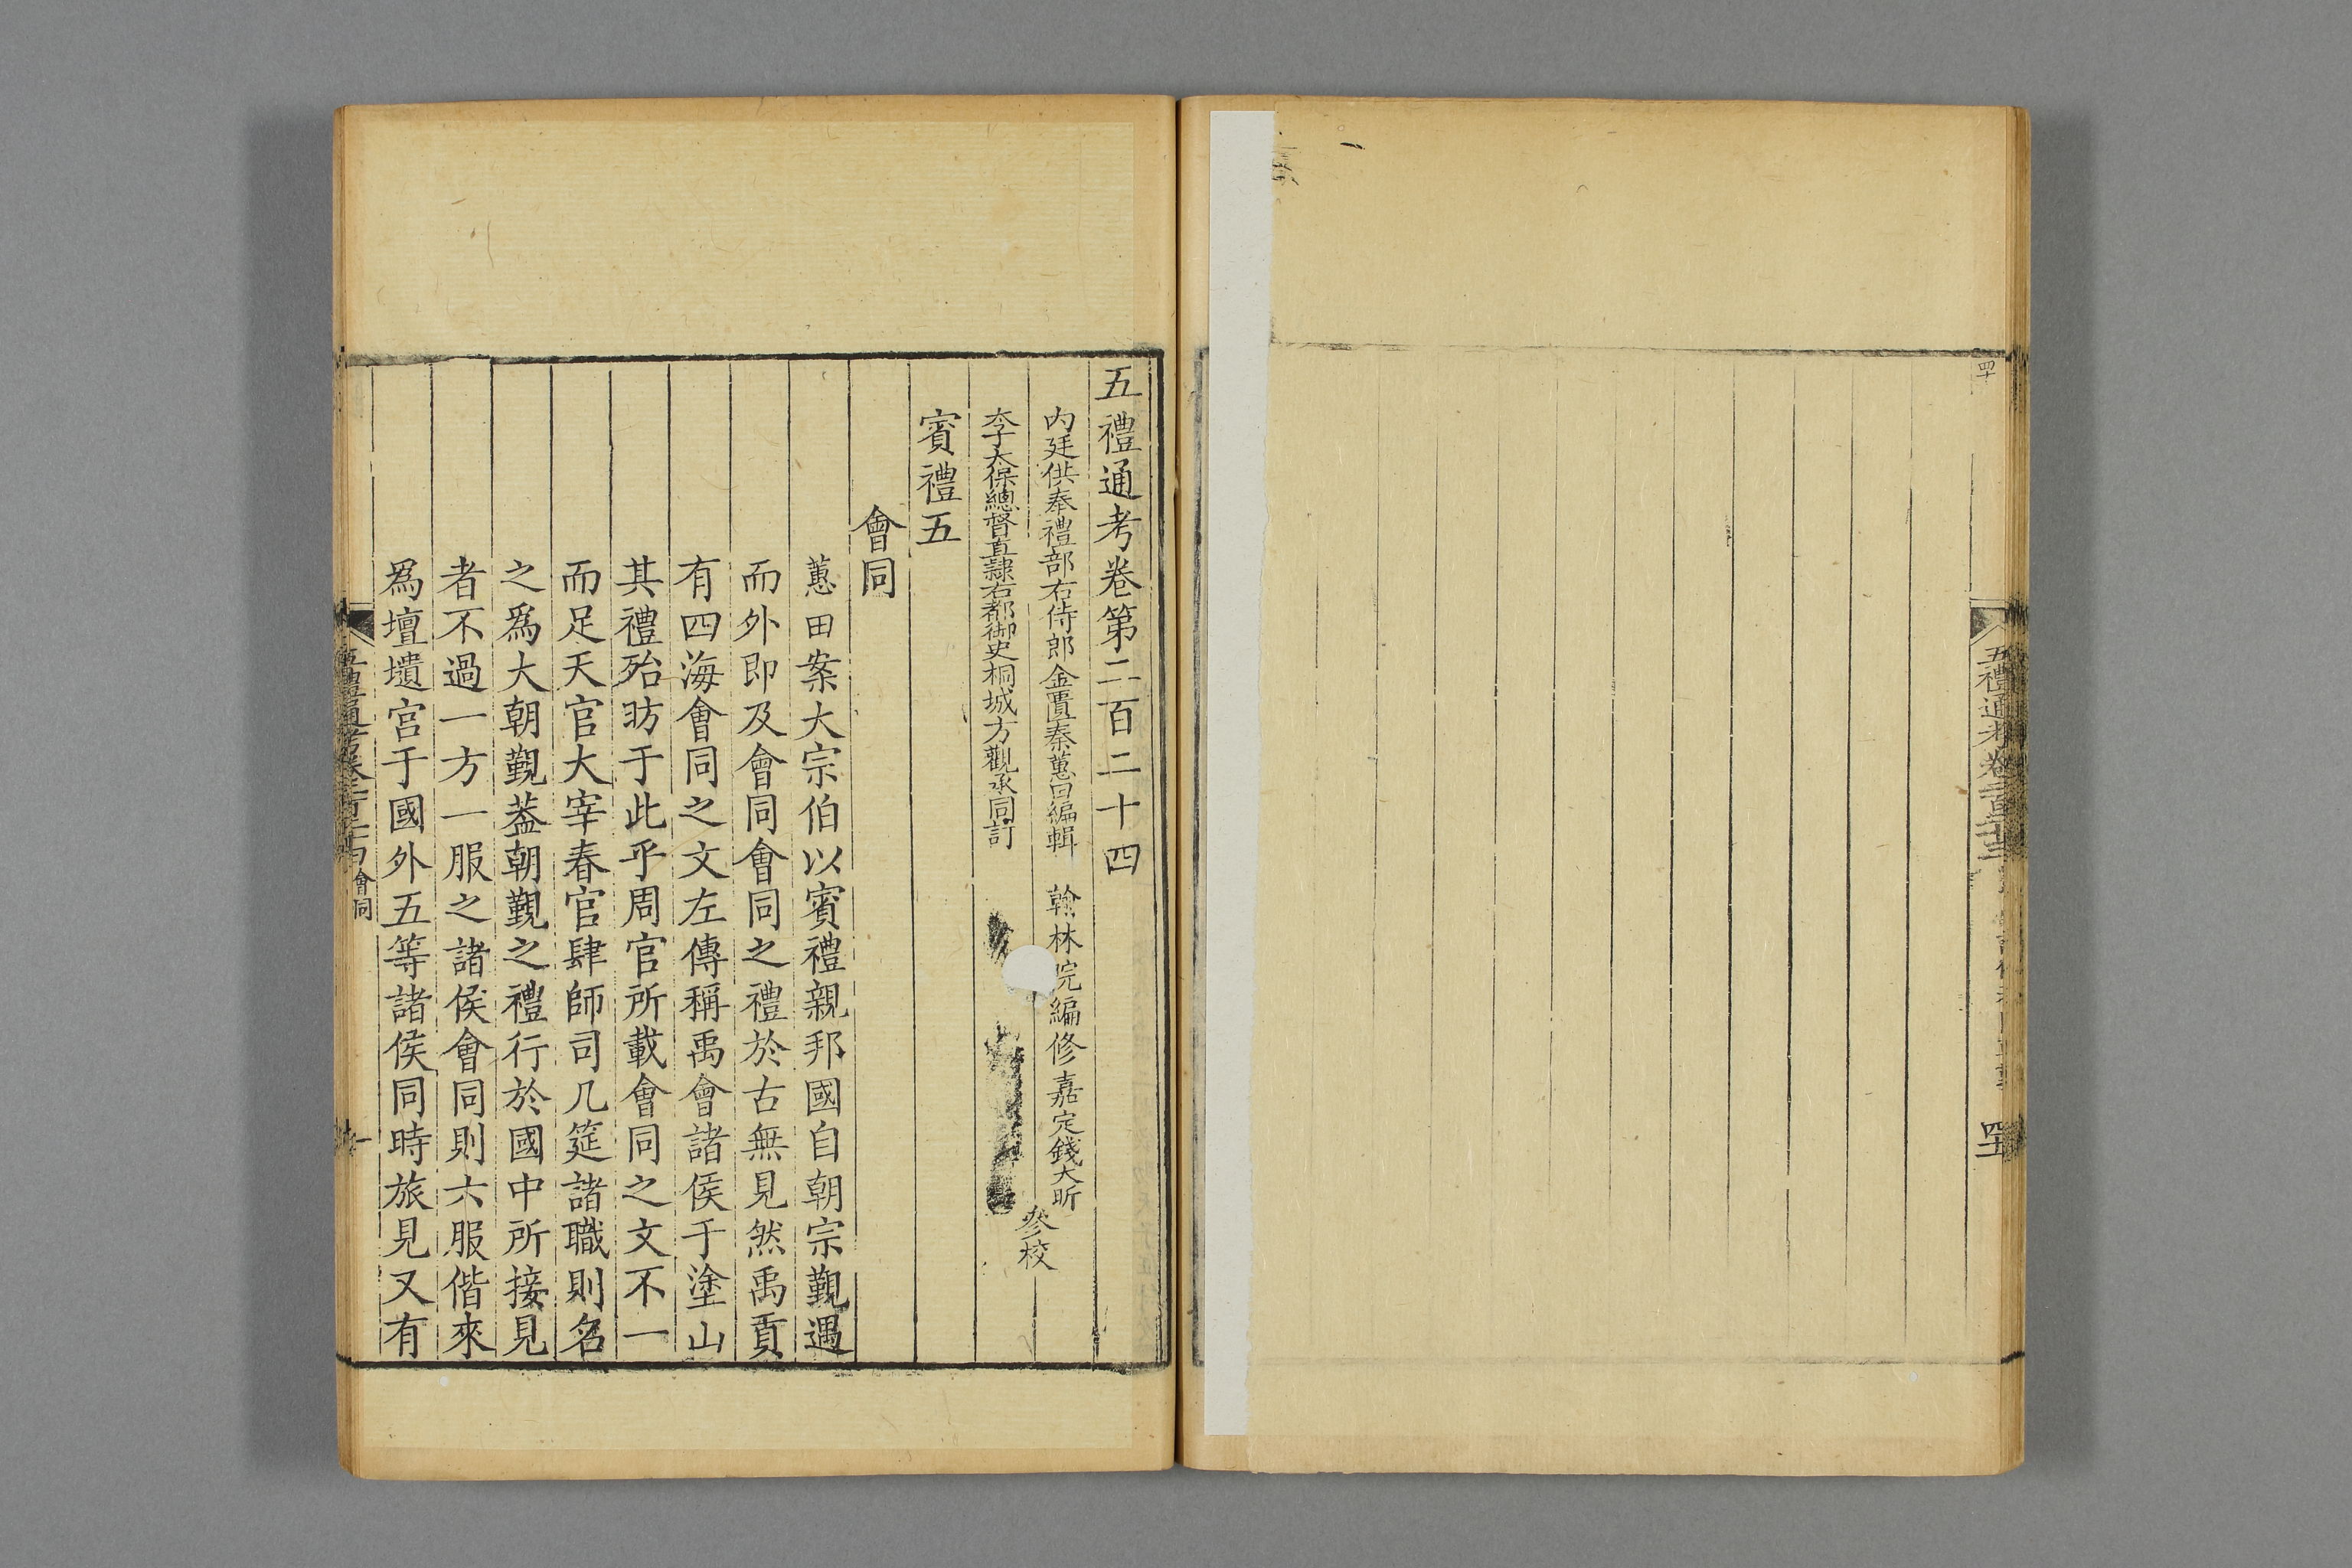 四十
五禮通考卷二百二十三
四十
五禮通考卷第二百二十四
内廷供奉禮部右侍郎金匱秦蕙田編輯 翰林院編修嘉定錢大昕
李太保總督直隸右都御史桐城方觀承同訂 參校
賓禮五
會同
蕙田案大宗伯以賓禮親邦國自朝宗覲遇
而外即及會同會同之禮於古無見然禹貢
有四海會同之文左傳稱禹會諸侯于塗山
其禮殆昉于此乎周官所載會同之文不一
而足天官大宰春官肆師司几筵諸職則名
之爲大朝覲蓋朝覲之禮行於國中所接見
者不過一方一服之諸侯會同則六服偕來
爲壇壝宫于國外五等諸侯同時旅見又有
五禮通考卷二百二十四 會同
一